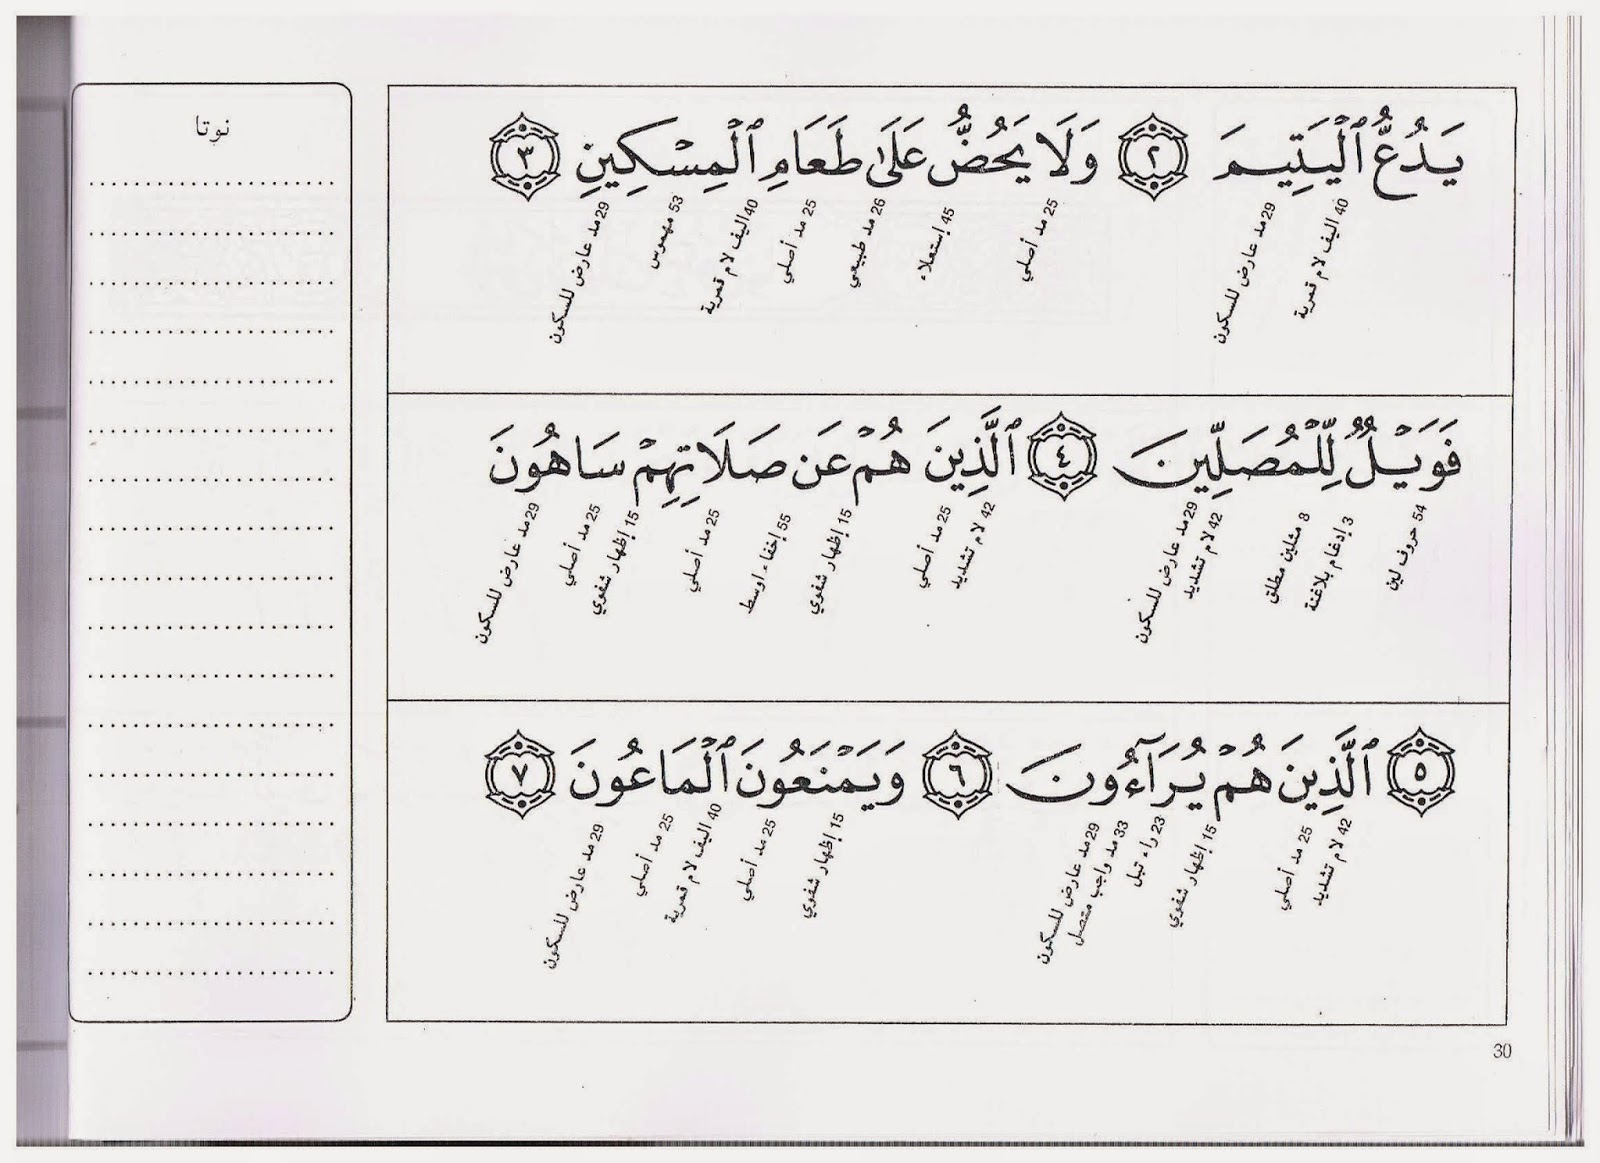 يَدُعُّ ٱلْيَتِيمَ ٢ وَلَا يَحُضُّ عَلَىٰ طَعَامِ ٱلْمِسْكِينِ ٣
40 اليف لام قمرية
29 مد عارض للسكون
25 مد أصلي
45 إستعلاء
26 مد طبيعي
25 مد أصلي
40 اليف لام قمرية
53 مهموس
29 مد عارض للسكون
فَوَيْلٌ لِّلْمُصَلِّينَ ٤ ٱلَّذِينَ هُمْ عَن صَلَاتِهِمْ سَاهُونَ
54 حروف لين
3 إدغام بلاغنة
8 مثلين مطلق
42 لام تشديد
29 مد عارض للسكون
42 لام تشديد
25 مد أصلي
15 إظهار شفوي
55 إخفاء اوسط
25 مد أصلي
15 إظهار شفوي
25 مد أصلي
29 مد عارض للسكون
٥ ٱلَّذِينَ هُمْ يُرَآءُونَ ٦ وَيَمْنَعُونَ ٱلْمَاعُونَ ٧
42 لام تشديد
25 مد أصلي
15 إظهار شفوي
23 راء تبل
33 مد واجب متصل
29 مد عارض للسكون
15 إظهار شفوي
25 مد أصلي
40 اليف لام قمرية
25 مد أصلي
29 مد عارض للسكون
نوتا
30